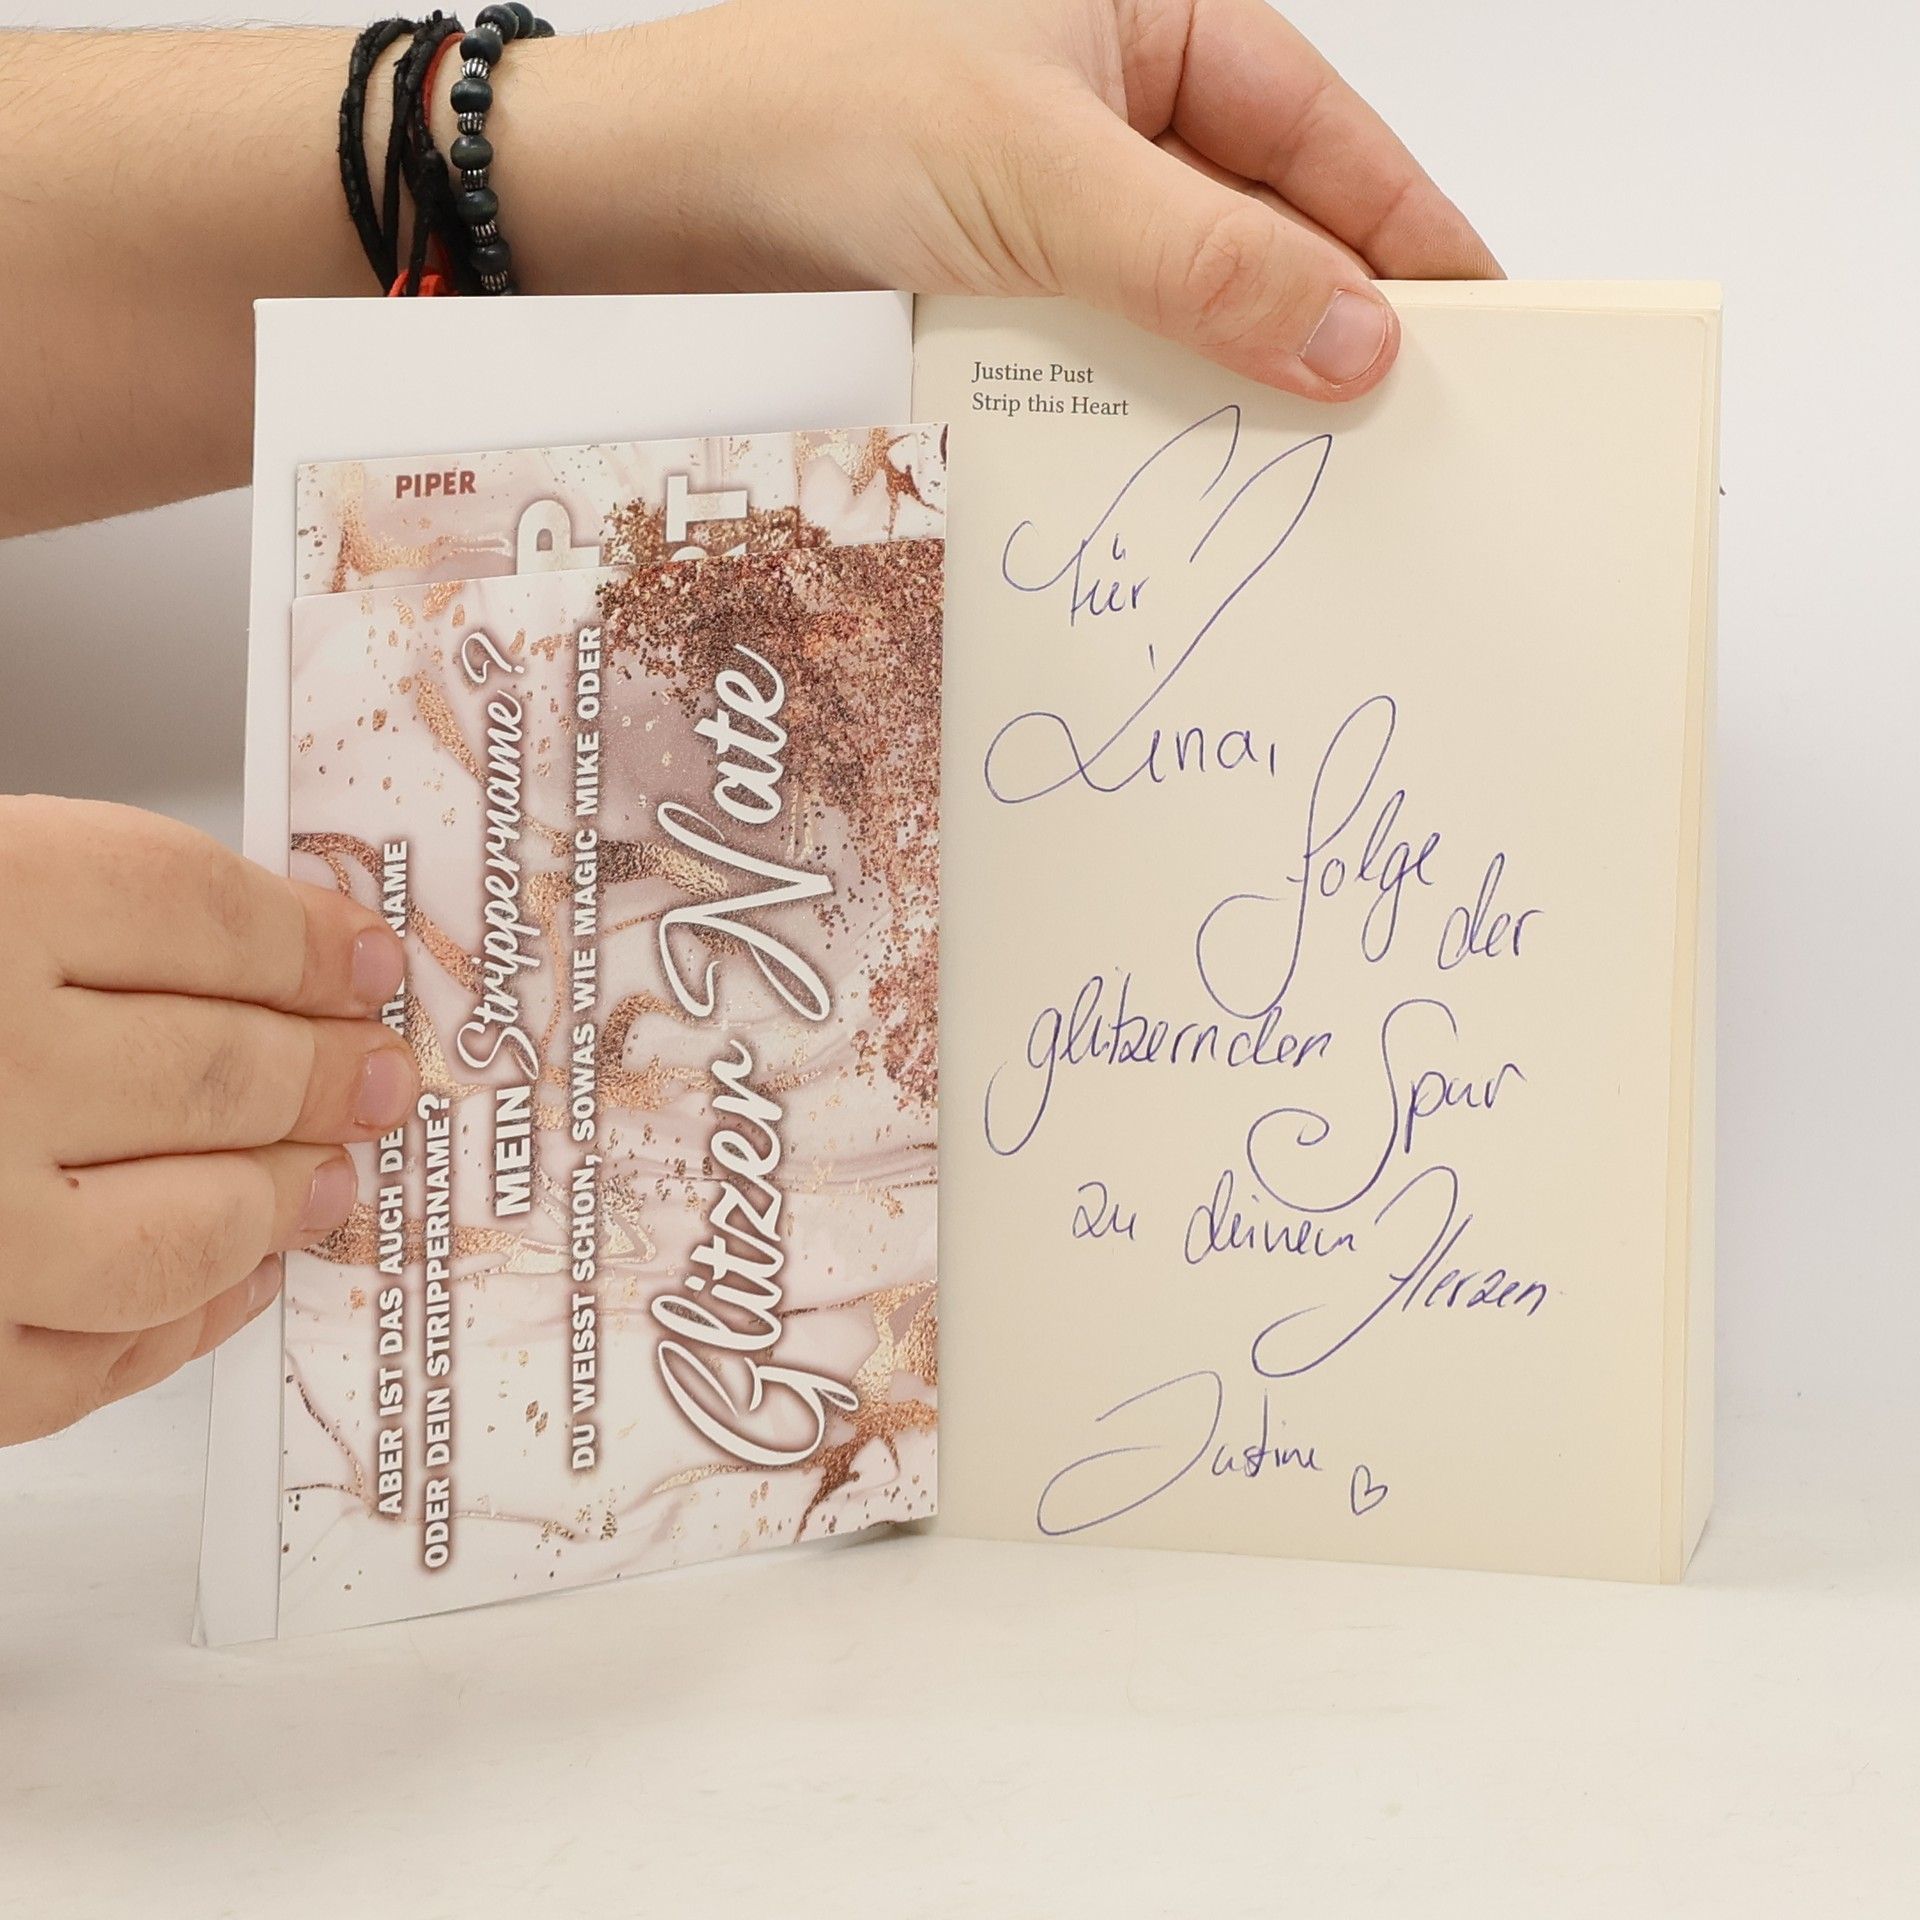 PIPER
P
RT
ABER IST DAS AUCH NAME
ODER DEIN STRIPPERNAME?
MEIN Strippername?
DU WEISST SCHON, SOWAS WIE MAGIC MIKE ODER
Glitzer Nate
Justine Pust
Strip this Heart
Für
Lina,
folge
der
glitzernden Spur
zu deinem Herzen
Justine